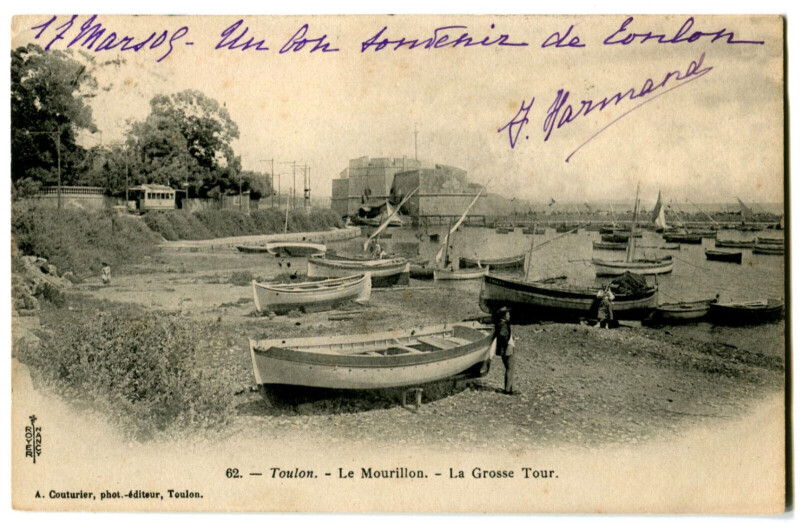 17 Mars 05 - Un bon souvenir de Toulon
J. Harmand
ROYER
NANCY
62. — Toulon. - Le Mourillon. - La Grosse Tour.
A. Couturier, phot.-éditeur, Toulon.